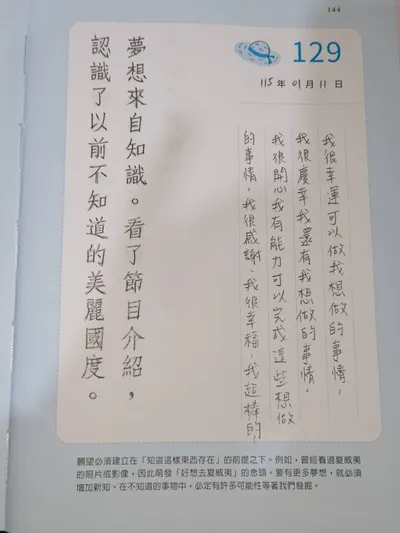 144
129
115年01月11日
夢想來自知識。看了節目介紹，
認識了以前不知道的美麗國度。
我很幸運可以做我想做的事情，
我很慶幸我還有我想做的事情，
我很開心我有能力可以完成這些想做
的事情，我很感謝、我很幸福，我超棒的！
願望必須建立在「知道這樣東西存在」的前提之下。例如，曾經看過夏威夷
的照片或影像，因此萌發「好想去夏威夷」的念頭。要有更多夢想，就必須
增加新知。在不知道的事物中，必定有許多可能性等著我們發掘。